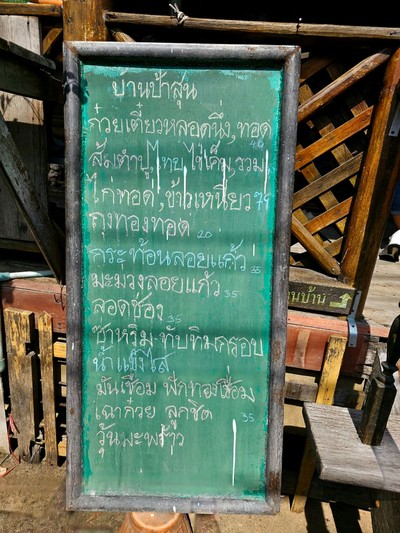 บ้านป้าสุ่น
ก๋วยเตี๋ยวหลอดนึ่ง,ทอด
ส้มตำปู,ไทย,ไข่เค็ม,รวม
ไก่ทอด,ข้าวเหนียว
ถุงทองทอด 20
กระท้อนลอยแก้ว 35
มะม่วงลอยแก้ว 35
ลอดช่อง 35
ซ่าหริ่ม ทับทิมกรอบ
น้ำแข็งไส
มันเชื่อม ฟักทองเชื่อม
เฉาก๊วย ลูกชิด 35
วุ้นมะพร้าว